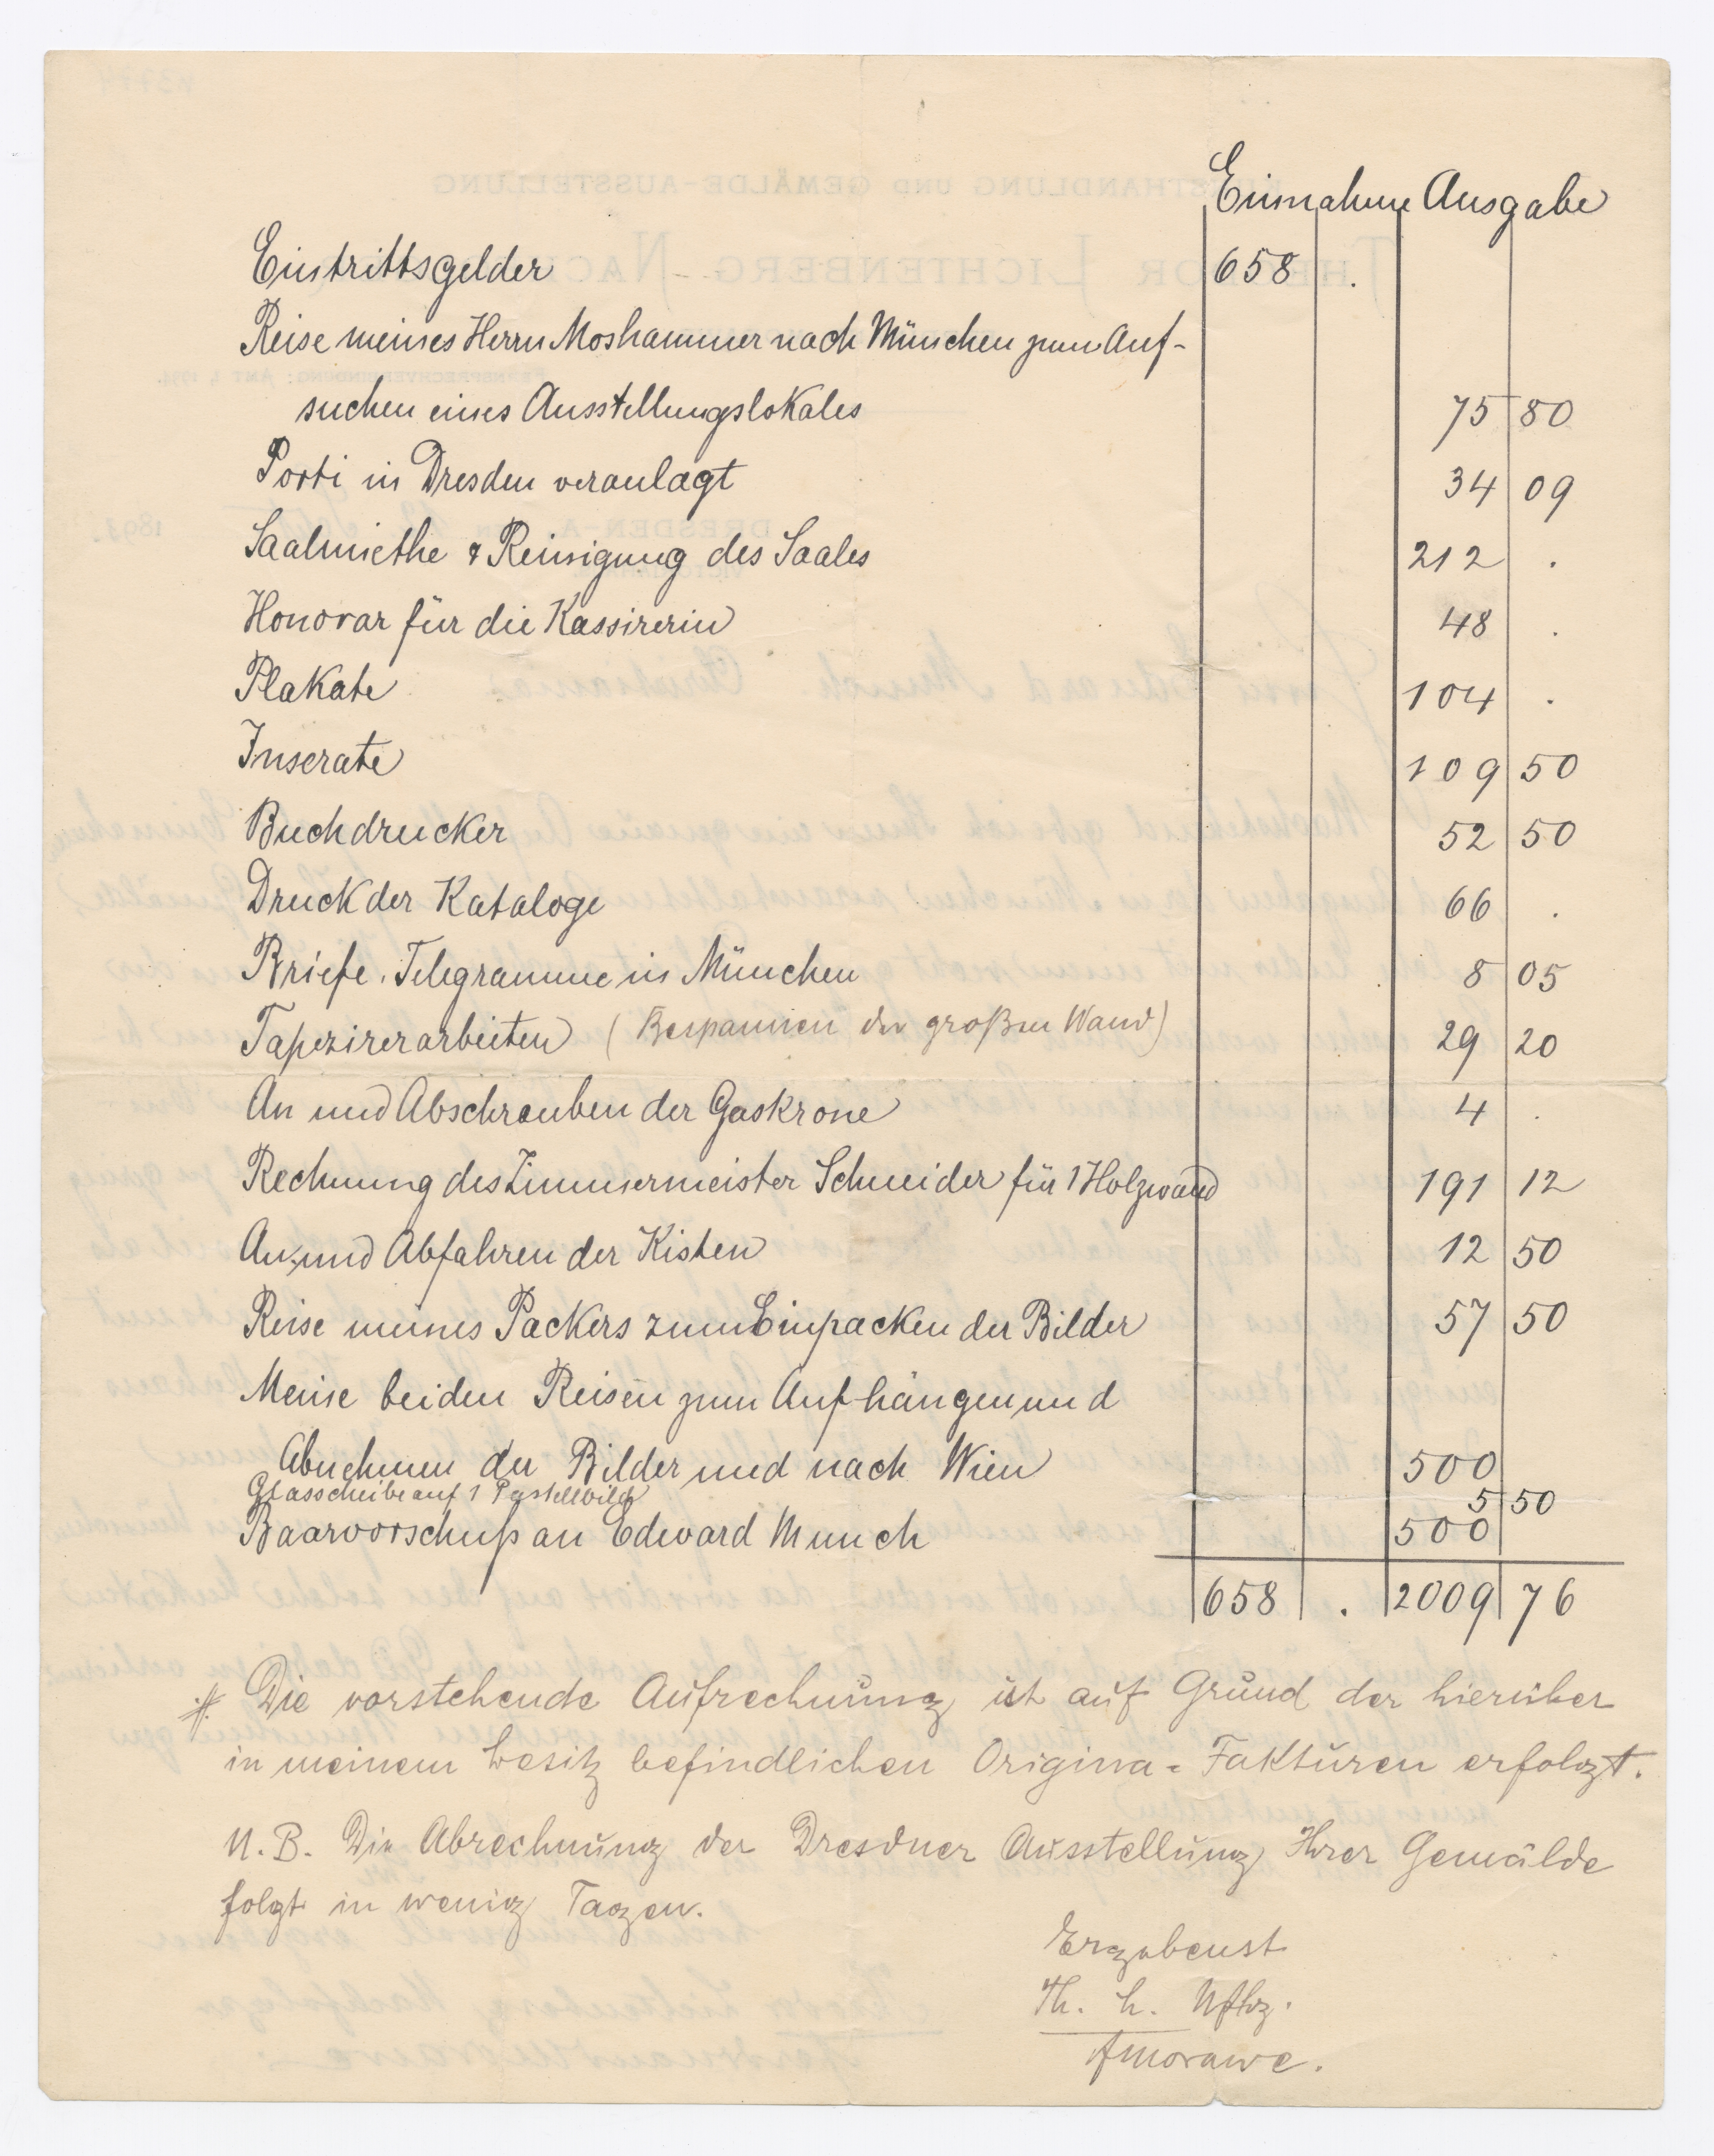 Einnahme Ausgabe
Eintrittsgelder 658 .
Reise meines Herrn Moshammer nach München zum Auf-
suchen eines Ausstellungslokales 75 80
Porti in Dresden veranlagt 34 09
Saalmiethe & Reinigung des Saales 212 .
Honorar für die Kassirerin 48 .
Plakate 104 .
Inserate 109 50
Buchdrucker 52 50
Druck der Kataloge 66 .
Briefe, Telegramme in München 8 05
Tapezirerarbeiten (Bespannen der großen Wand) 29 20
An und Abschrauben der Gaskrone 4 .
Rechnung des Zimmermeister Schneider für 1 Holzwand 191 12
An und Abfahren der Kisten 12 50
Reise meines Packers zum Einpacken der Bilder 57 50
Meine beiden Reisen zum Aufhängen und
Abnehmen der Bilder und nach Wien 500
Glasscheibe auf 1 Pastellbild 5 50
Baarvorschuß an Edward Munch 500
658 . 2009 76
Die vorstehende Aufrechnung ist auf Grund der hierüber
in meinem Besitz befindlichen Origina-Fakturen erfolgt.
N.B. Die Abrechnung der Dresdner Ausstellung Ihrer Gemälde
folgt in wenig Tagen.
Ergebenst
Th. L. Nflg.